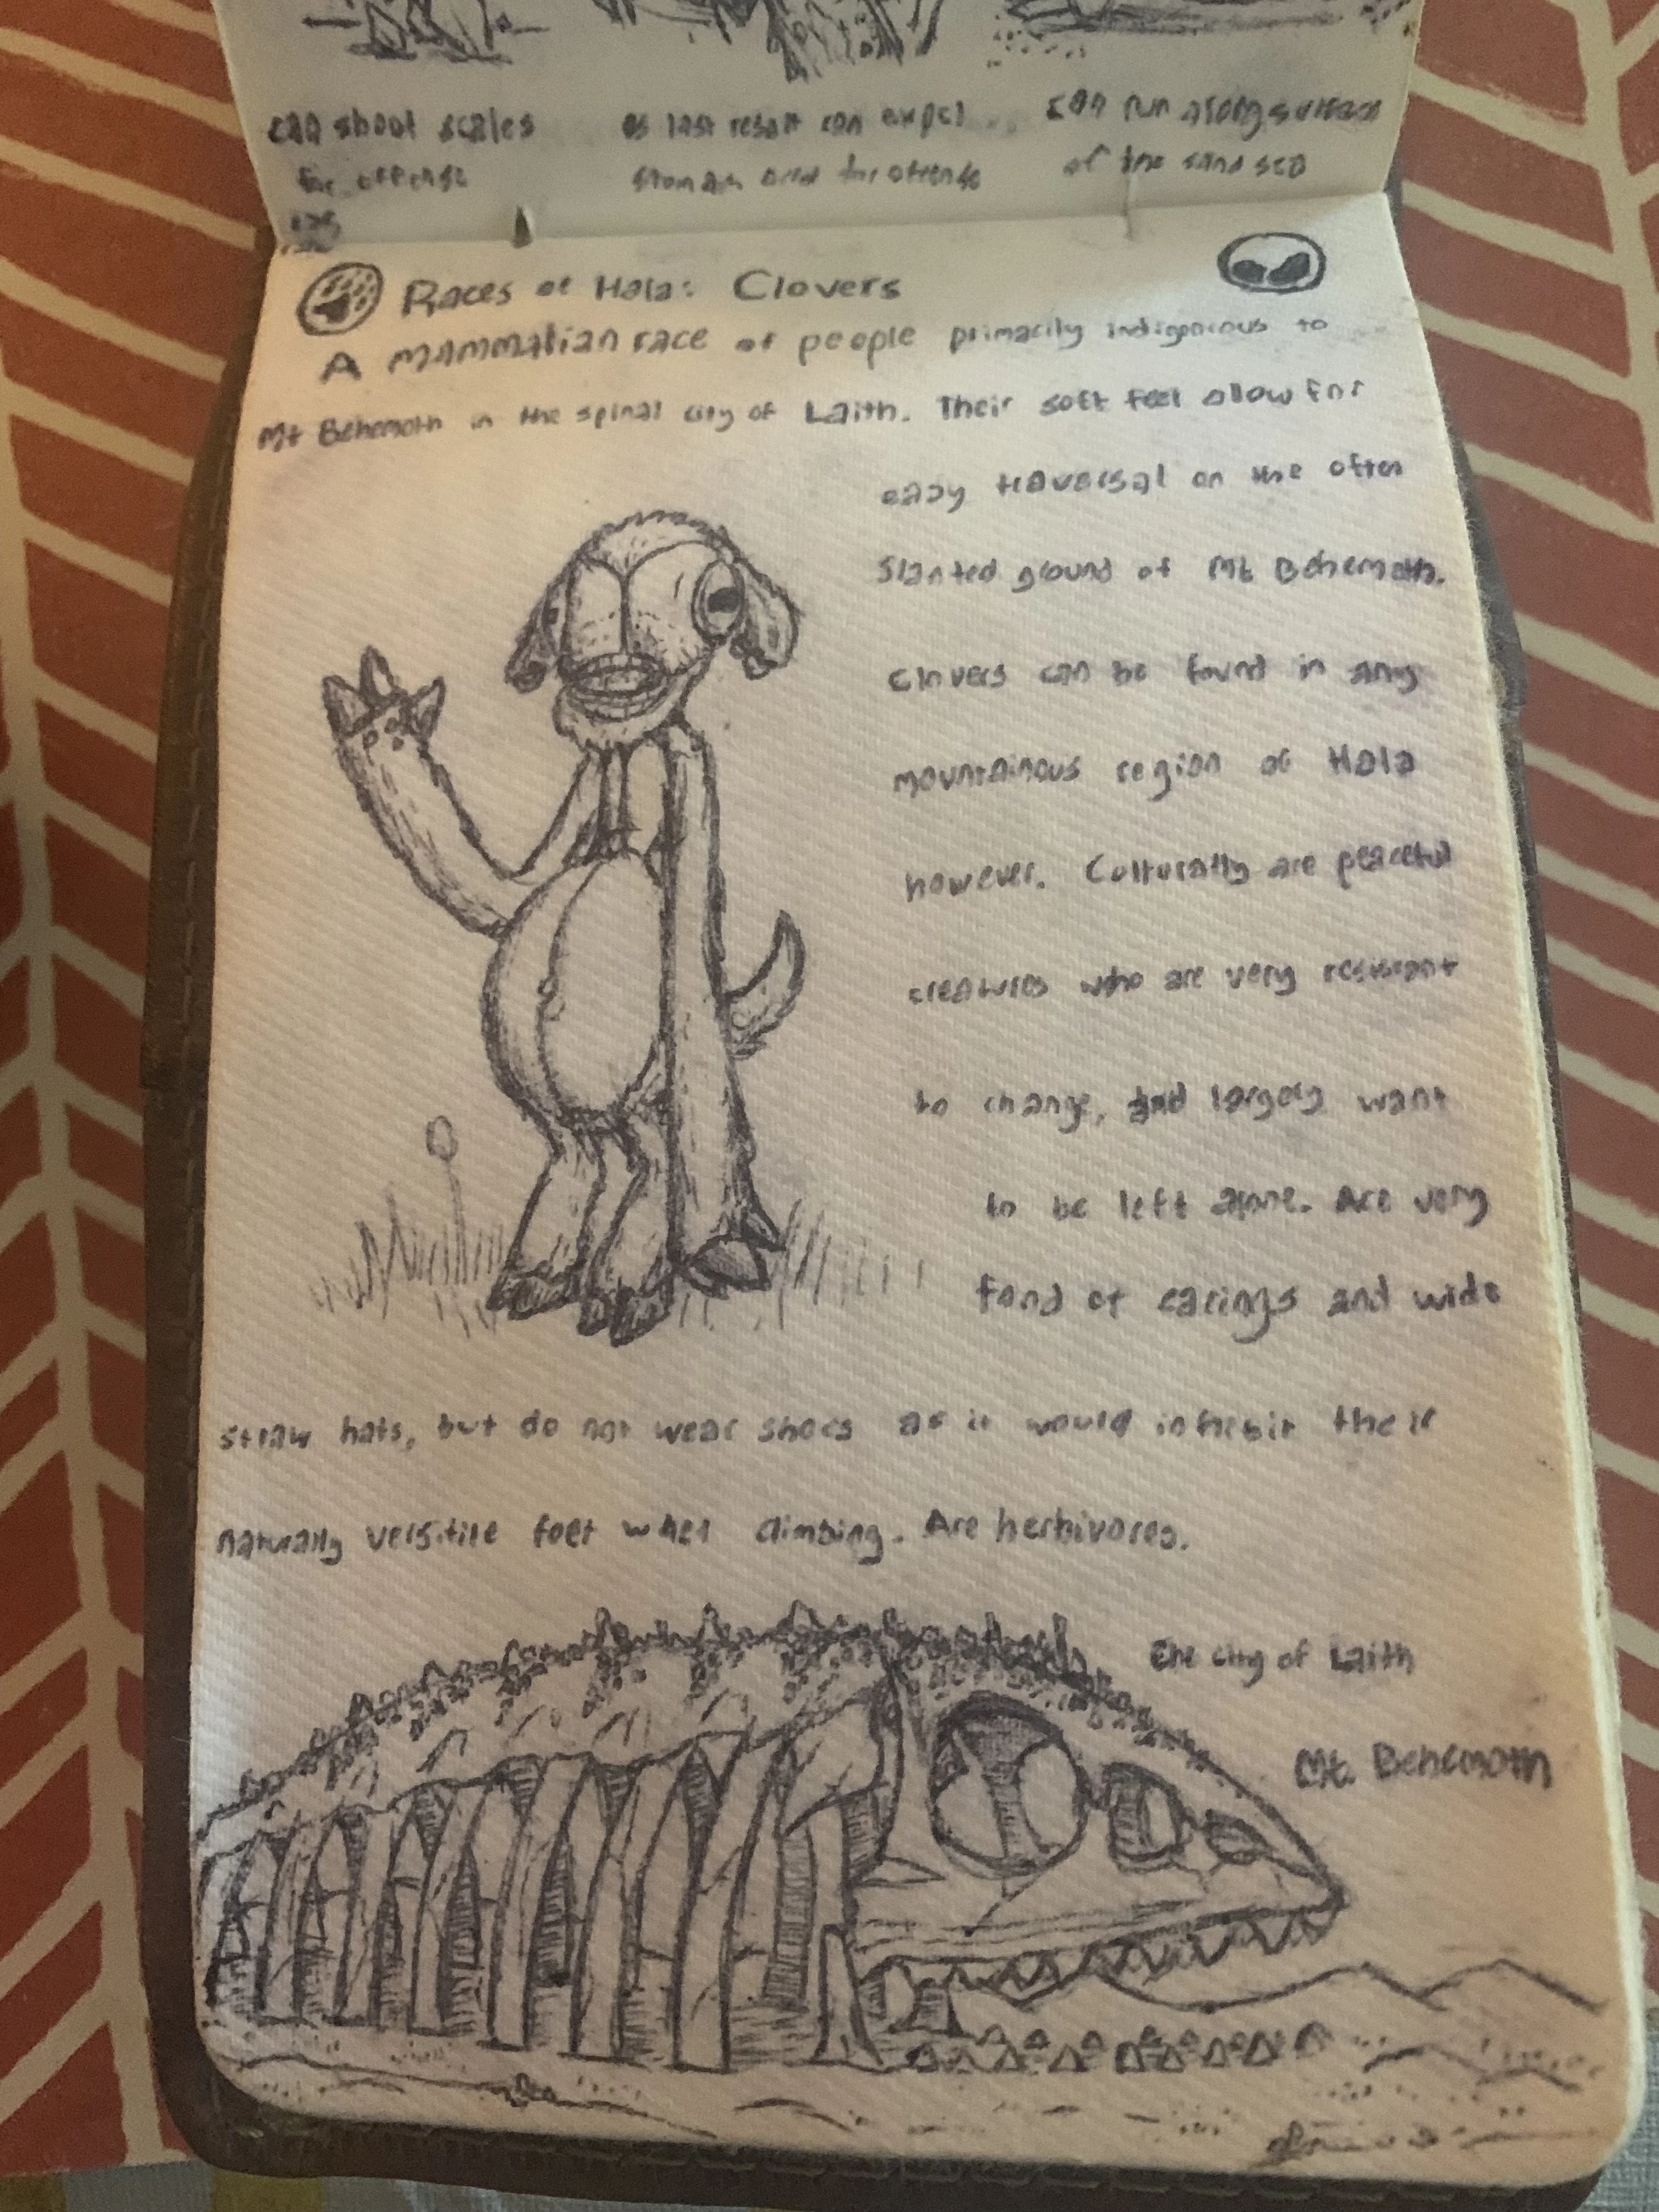 can shoot scales
for offense
as last resort can expel
stomach acid for offense
can run along surface
of the sand sea
Races of Hala: Clovers
A mammalian race of people primarily indigenous to
Mt Behemoth in the spinal city of Laith. Their soft feet allow for
easy traversal on the often
slanted ground of Mt Behemoth.
Clovers can be found in any
mountainous region of Hala
however. Culturally are peaceful
creatures who are very resistant
to change, and largely want
to be left alone. Are very
fond of earings and wide
straw hats, but do not wear shoes as it would inhibit their
naturally versitile feet when climbing. Are herbivores.
The city of Laith
Mt. Behemoth